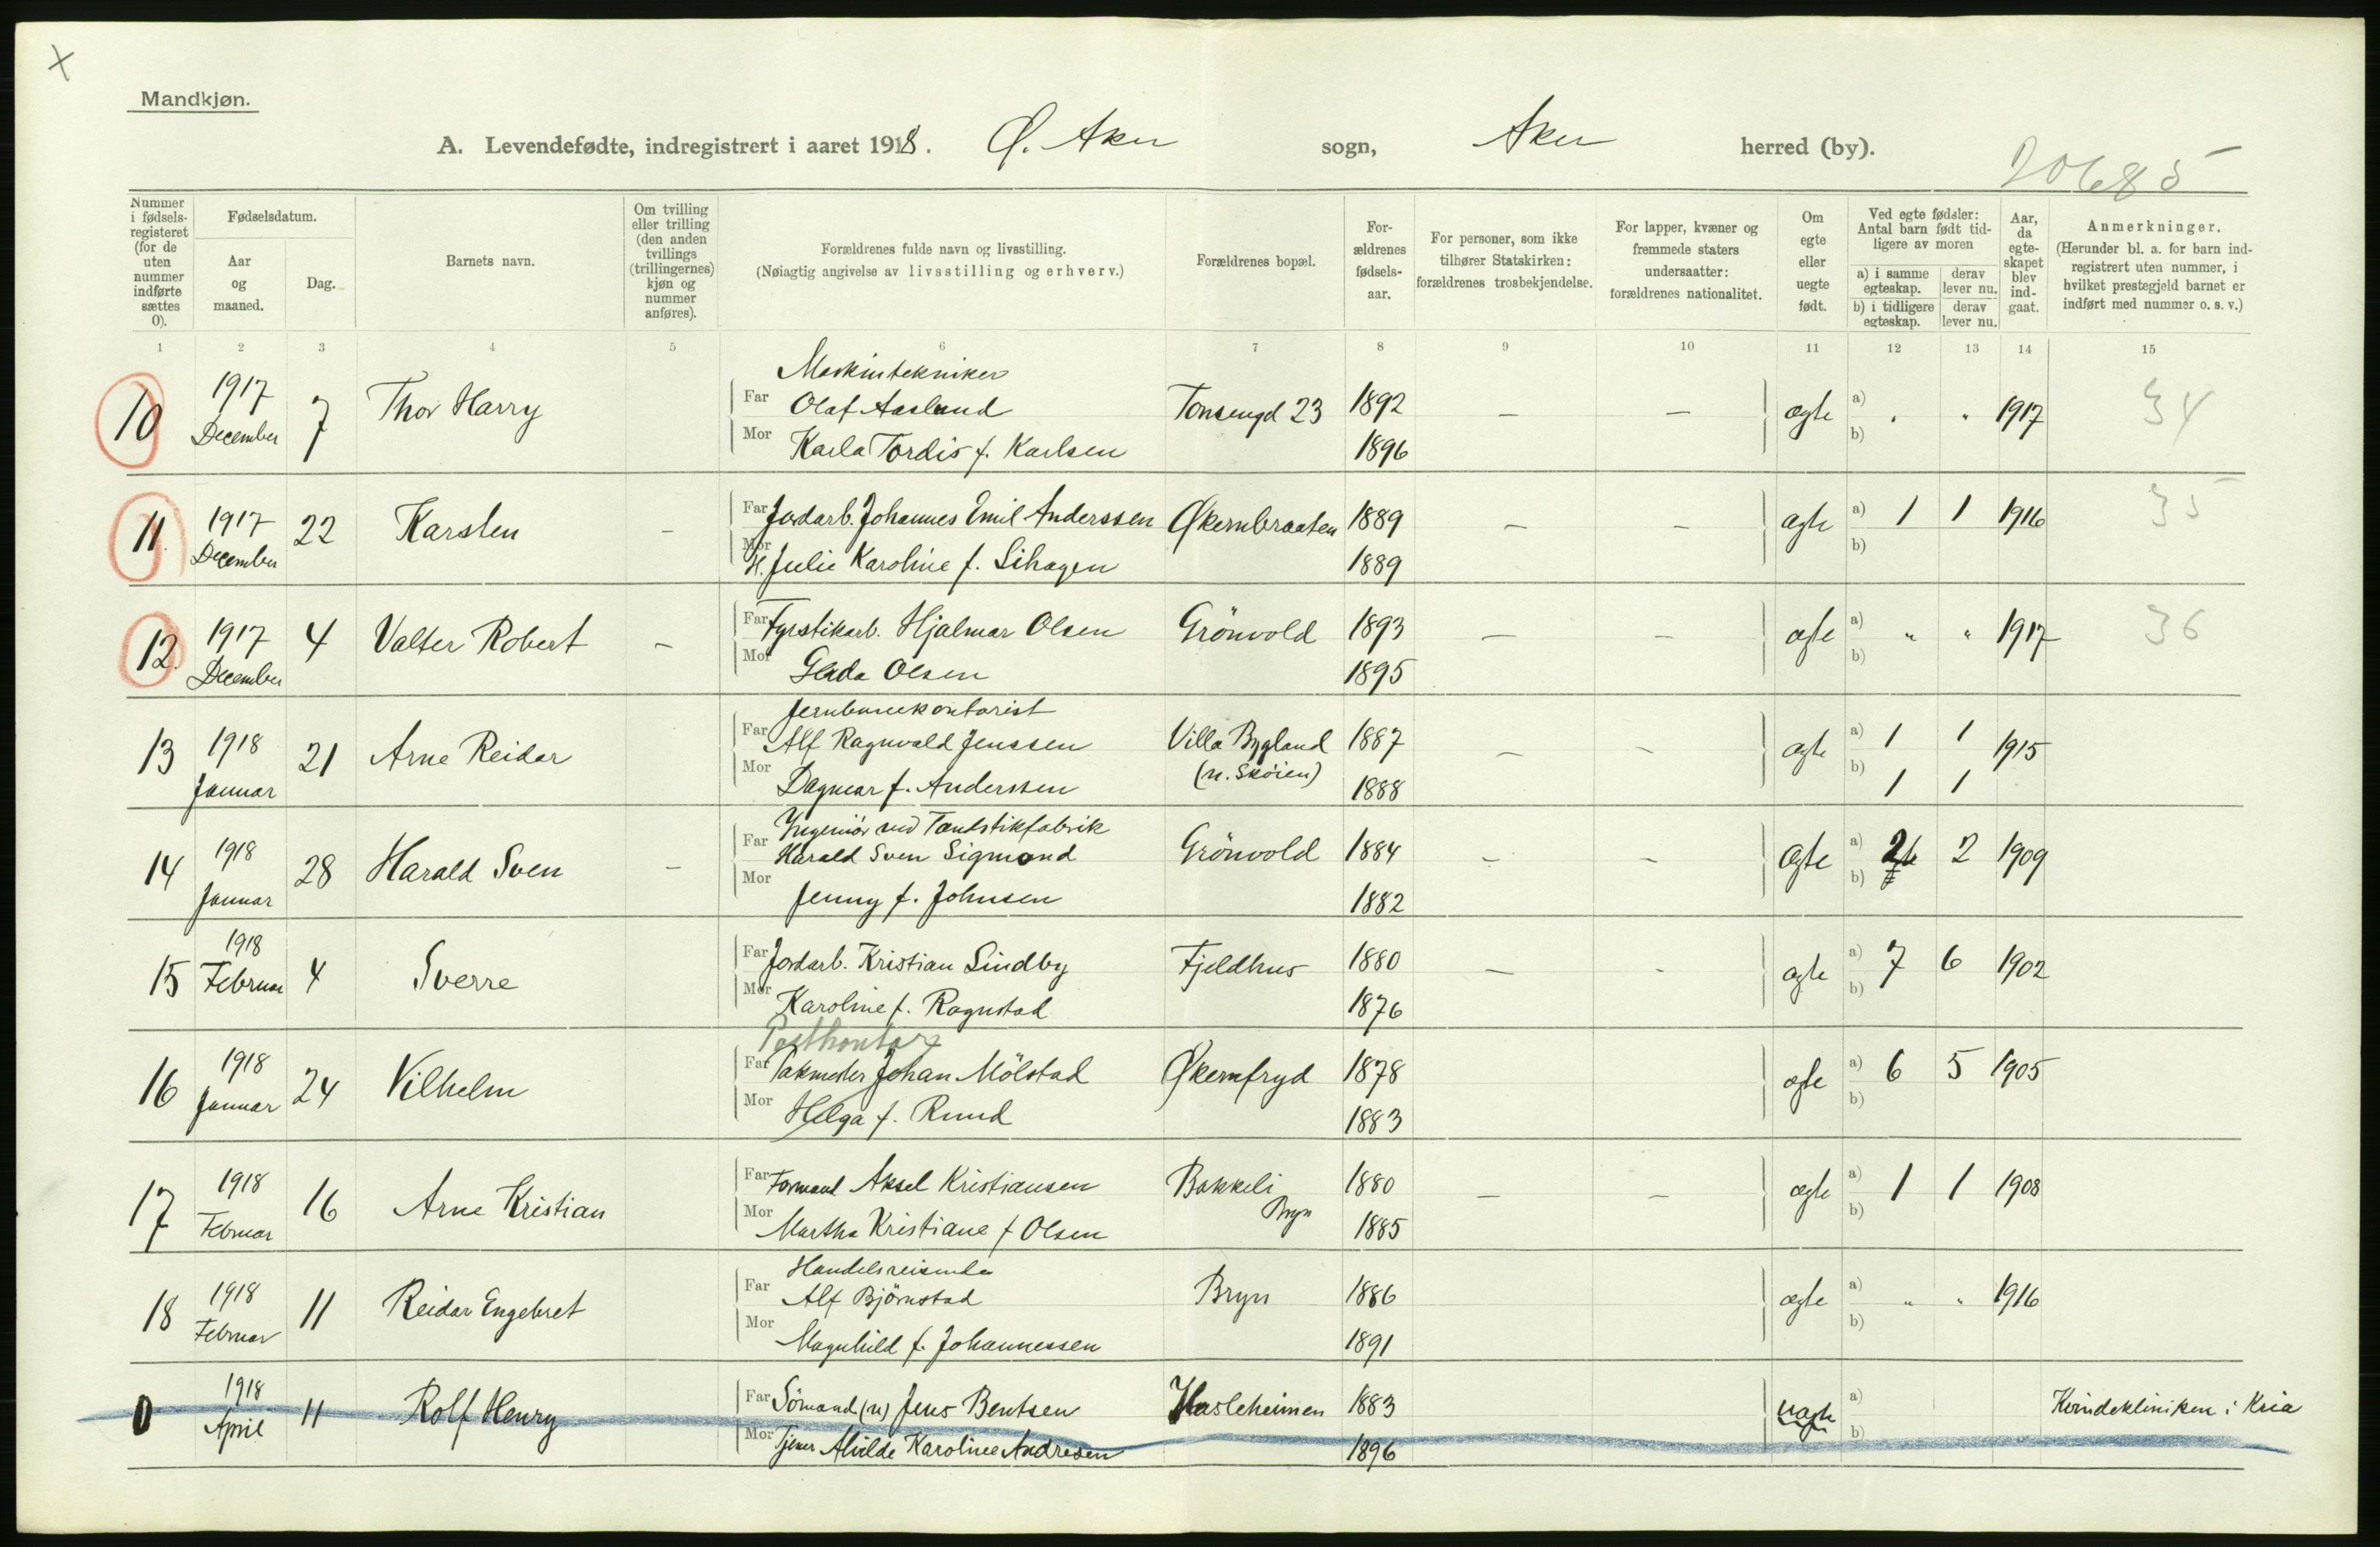 Mandkjøn.
A. Levendefødte, indregistrert i aaret 1918. Ø. Aker sogn, Aker herred (by).
20685
Nummer i fødsels-registeret (for de uten nummer indførte sættes 0).
Fødselsdatum.
Aar og maaned.
Dag.
Barnets navn.
Om tvilling eller trilling (den anden tvillings (trillingernes) kjøn og nummer anføres).
Forældrenes fulde navn og livsstilling.
(Nøiagtig angivelse av livsstilling og erhverv.)
Forældrenes bopæl.
For-ældrenes fødsels-aar.
For personer, som ikke tilhører Statskirken: forældrenes trosbekjendelse.
For lapper, kvæner og fremmede staters undersaatter: forældrenes nationalitet.
Om egte eller uegte født.
Ved egte fødsler: Antal barn født tid-ligere av moren
a) i samme egteskap.
derav lever nu.
b) i tidligere egteskap.
derav lever nu.
Aar, da egte-skapet blev ind-gaat.
Anmerkninger.
(Herunder bl. a. for barn ind-registrert uten nummer, i hvilket prestegjeld barnet er indført med nummer o. s. v.)
1 2 3 4 5 6 7 8 9 10 11 12 13 14 15
Maskintekniker
10 1917 December 7 Thor Harry Far Olaf Aaslund Tonsengd 23 1892 – – ægte a) " " 1917 34
Mor Karla Tordis f. Karlsen 1896 b)
11. 1917 December 22 Karsten – Far Jordarb. Johannes Emil Anderssen Økernbraaten 1889 – – ægte a) 1 1 1916 35
Mor H. Julie Karoline f. Lihagen 1889 b)
12. 1917 December 4 Valter Robert – Far Fyrstikarb. Hjalmar Olsen Grönvold 1893 – – ægte a) " " 1917 36
Mor Olsen 1895 b)
Jernbanekontorist
13 1918 Januar 21 Arne Reidar Far Alf Ragnvald Jenssen Villa Bygland 1887 – – ægte a) 1 1 1915
Mor Dagmar f. Anderssen (n. Skøien) 1888 b) 1 1
Ingeniör ved Tændstikfabrik
14 1918 Januar 28 Harald Sven – Far Harald Sven Sigmond Grönvold 1884 – – ægte a) 2 2 1909
Mor Jenny f. Johnsen 1882 b)
15 1918 Februar 4 Sverre Far Jordarb. Kristian Lindby Fjeldhus 1880 – – ægte a) 7 6 1902
Mor Karoline f. Ragnstad 1876 b)
Postkontor
16 1918 Januar 24 Vilhelm Far Pakmester Johan Mölstad Økernfryd 1878 ægte a) 6 5 1905
Mor Helga f. Rund 1883 b)
17 1918 Februar 16 Arne Kristian Far Formand Aksel Kristiansen Bakkeli Bryn 1880 – – ægte a) 1 1 1908
Mor Martha Kristiane f Olsen 1885 b)
Handelsreisende
18 1918 Februar 11 Reidar Engebret Far Alf Björnstad Bryn 1886 ægte a) " " 1916
Mor Magnhild f. Johannessen 1891 b)
0 1918 April 11 Rolf Henry Far Sömand (n) Jens Bentsen Hasleheimen 1883 uægte a) Kvindekliniken i Kria
Mor Tjener Alvilde Karoline Andresen 1896 b)